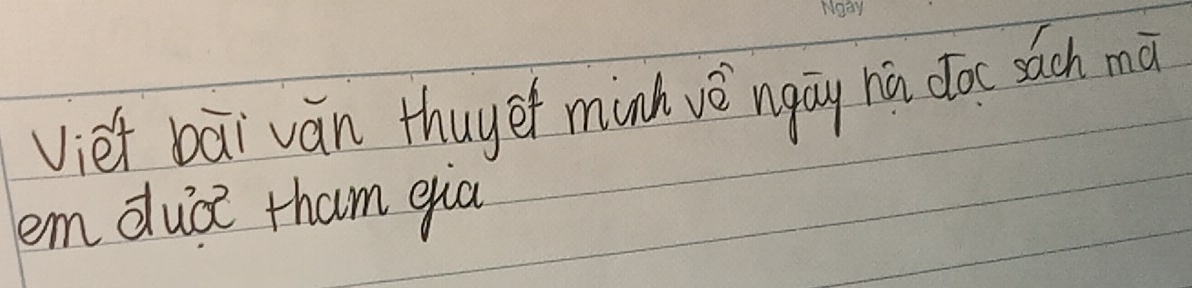 Ngày
Viết bài văn thuyết minh về ngày hội đọc sách mà
em được tham gia